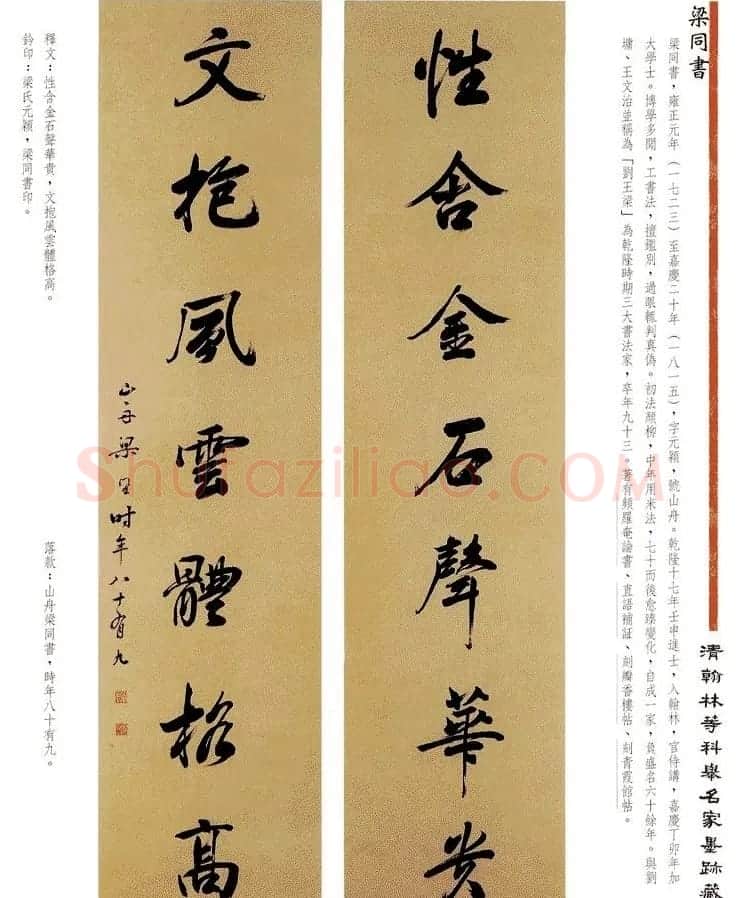 梁同書
梁同書，雍正元年（一七二三）至嘉慶二十年（一八一五），字元穎，號山舟。乾隆十七年壬申進士，入翰林，官侍講，嘉慶丁卯年加
大學士。博學多聞，工書法，擅鑑別，過眼輒判真偽。初法顏柳，中年用米法，七十而後愈臻變化，自成一家，負盛名六十餘年。與劉
墉、王文治並稱為「劉王梁」為乾隆時期三大書法家，卒年九十三，著有頻羅奄論書、直語補証、刻瓣香樓帖、刻青霞館帖。
清翰林等科舉名家墨跡藏
性含金石聲華貴
文抱風雲體格高
山舟梁同書時年八十有九
釋文：性含金石聲華貴，文抱風雲體格高。
鈐印：梁氏元穎，梁同書印。
落款：山舟梁同書，時年八十有九。
Shufaziliao.COM